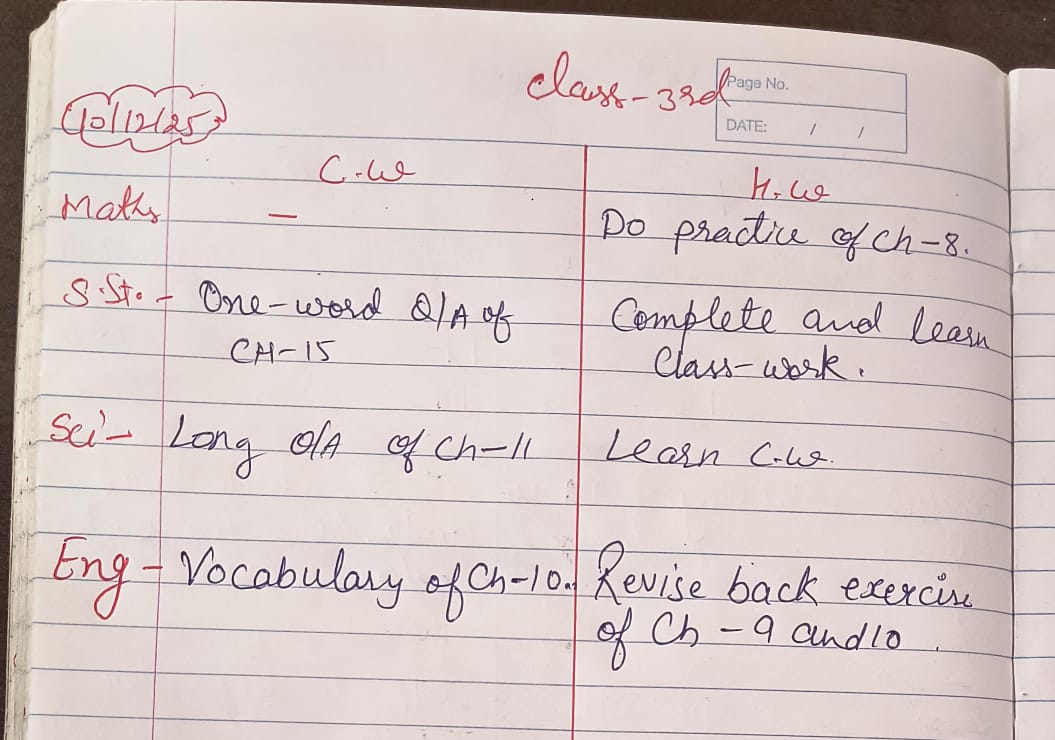 class-3rd
Page No.
DATE: / /
10/12/25
C.W H.W
Maths — Do practice of Ch-8.
S.St. - One-word Q/A of Complete and learn
CH-15 Class-work.
Sci - Long Q/A of Ch-11 Learn C.W.
Eng - Vocabulary of Ch-10. Revise back exercise
of Ch - 9 and 10.